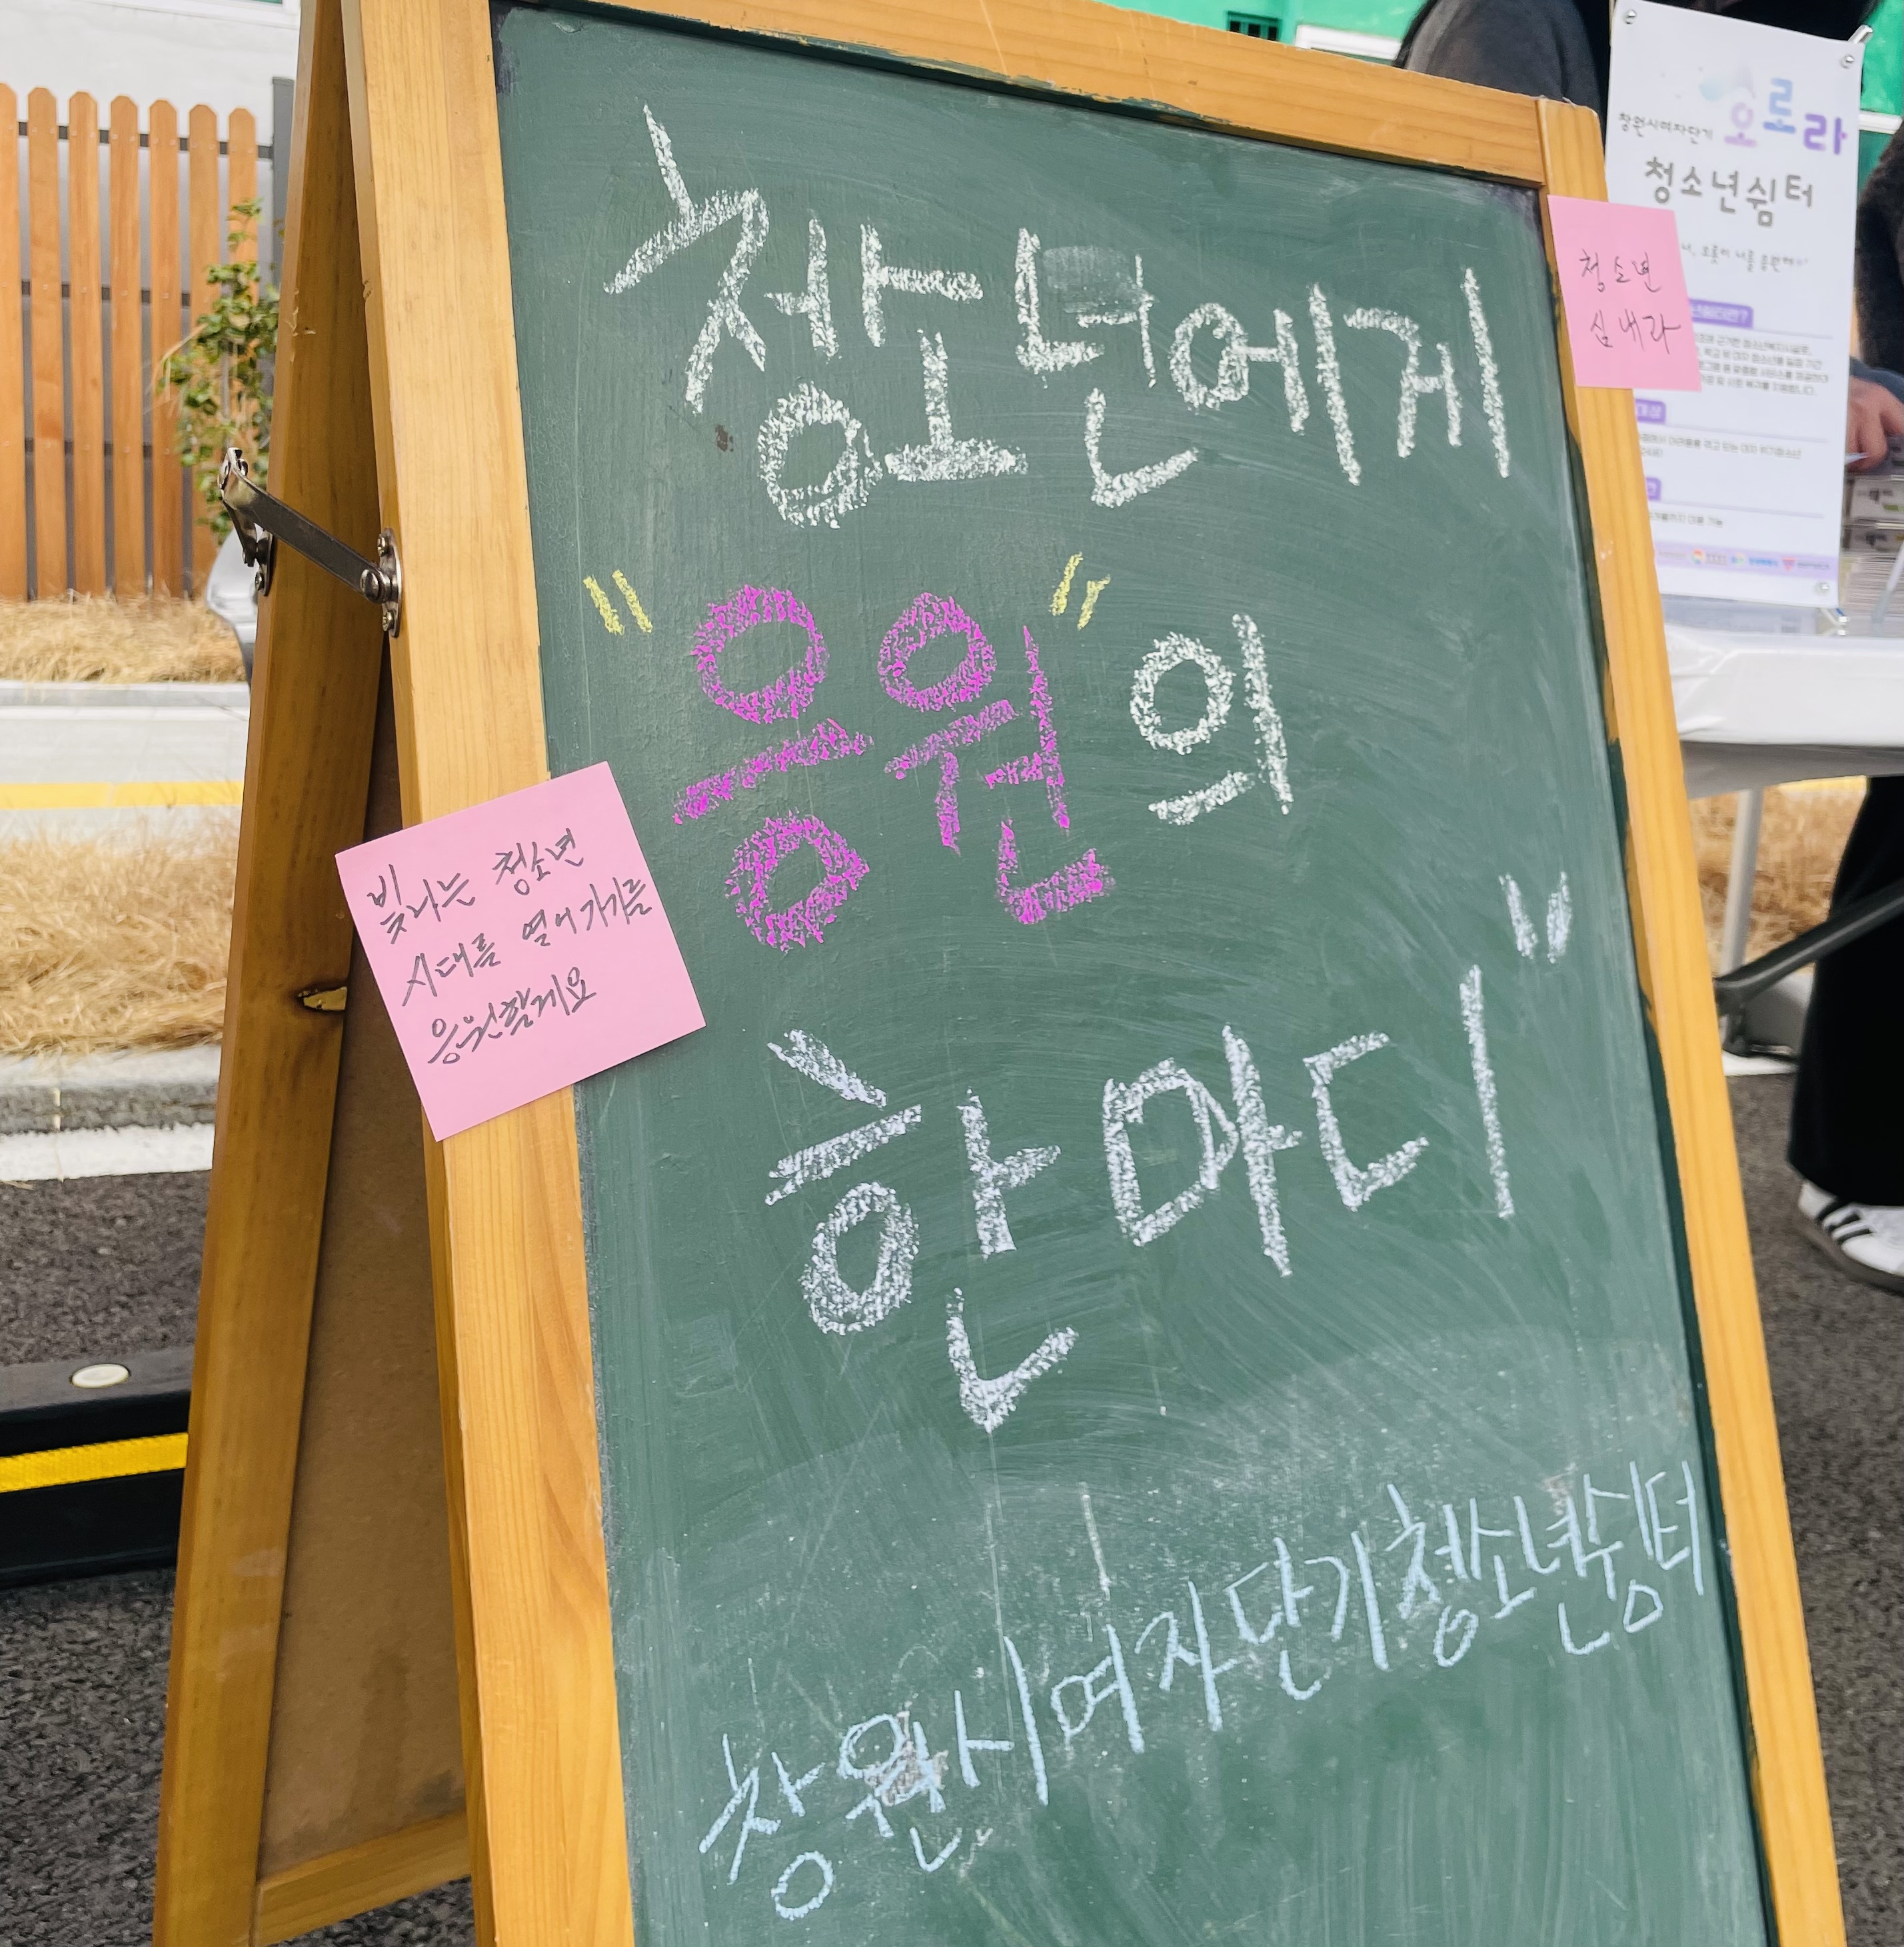 청소년에게
"응원"의
한마디"
창원시여자단기청소년쉼터
빛나는 청소년
시대를 열어가기를
응원할게요
청소년
심내라
창원시여자단기 오로라
청소년쉼터